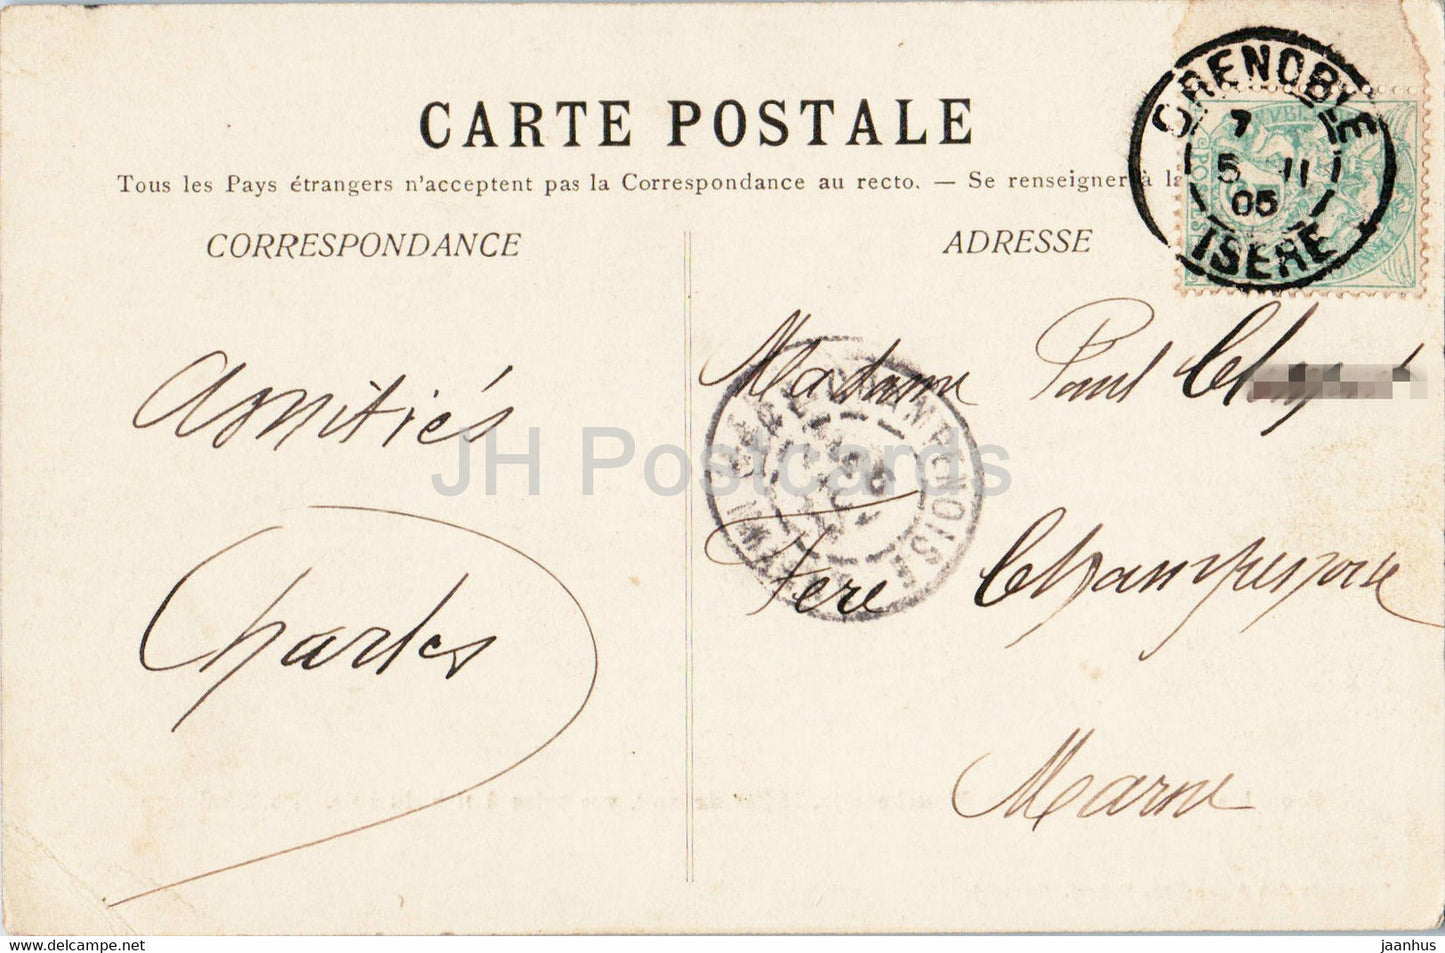 CARTE POSTALE
Tous les Pays étrangers n'acceptent pas la Correspondance au recto. — Se renseigner à la
CORRESPONDANCE
ADRESSE
GRENOBLE
7
5 11
05
ISERE
Amitiés
Charles
Madame Paul
Fere Champenoise
Marne
FERE CHAMPENOISE
JH Postcards
www.delcampe.net
jaanhus